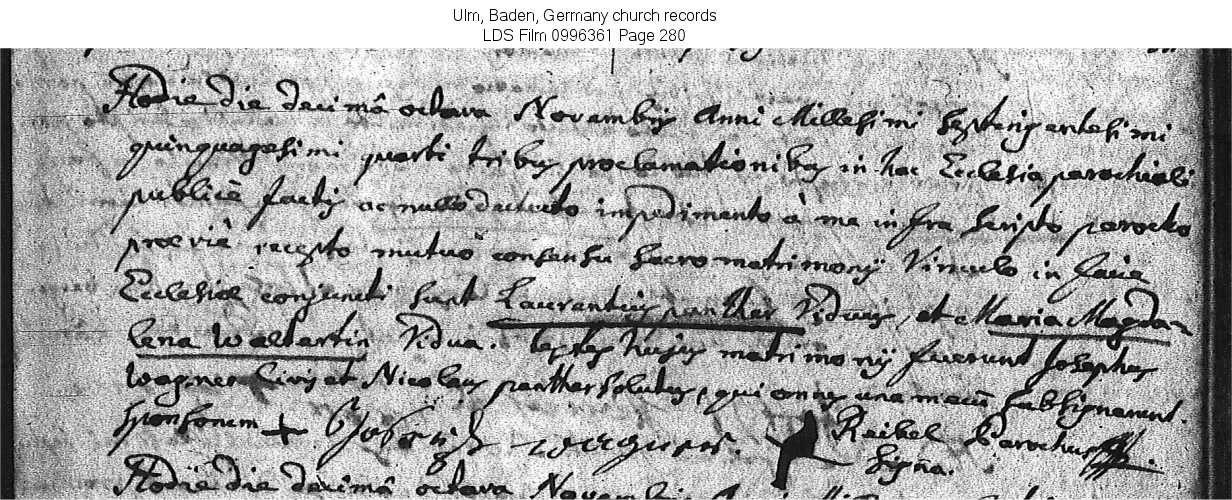 Ulm, Baden, Germany church records
LDS Film 0996361 Page 280
Hodie die decimâ octava Novembris Anni Millesimi Septengentesimi
quinquagesimi quarti tribus proclamationibus in hac Ecclesia parochiali
publicè factis ac nullo detecto impedimento à me infra scripto parocho
praeviè recepto mutuo consensu sacro matrimonij Vinculo in facie
Ecclesiae conjuncti sunt Laurentius panther Viduus, et Maria Magda-
lena Walterin Vidua. testes hujus matrimonij fuerunt Josephus
Wagner Civis et Nicolaus panther solutus, qui omnes una mecũ subsignarunt.
sponsorum + Joseph wagner. Reibel Parochus
signa.
Hodie die decimâ octava Novembris